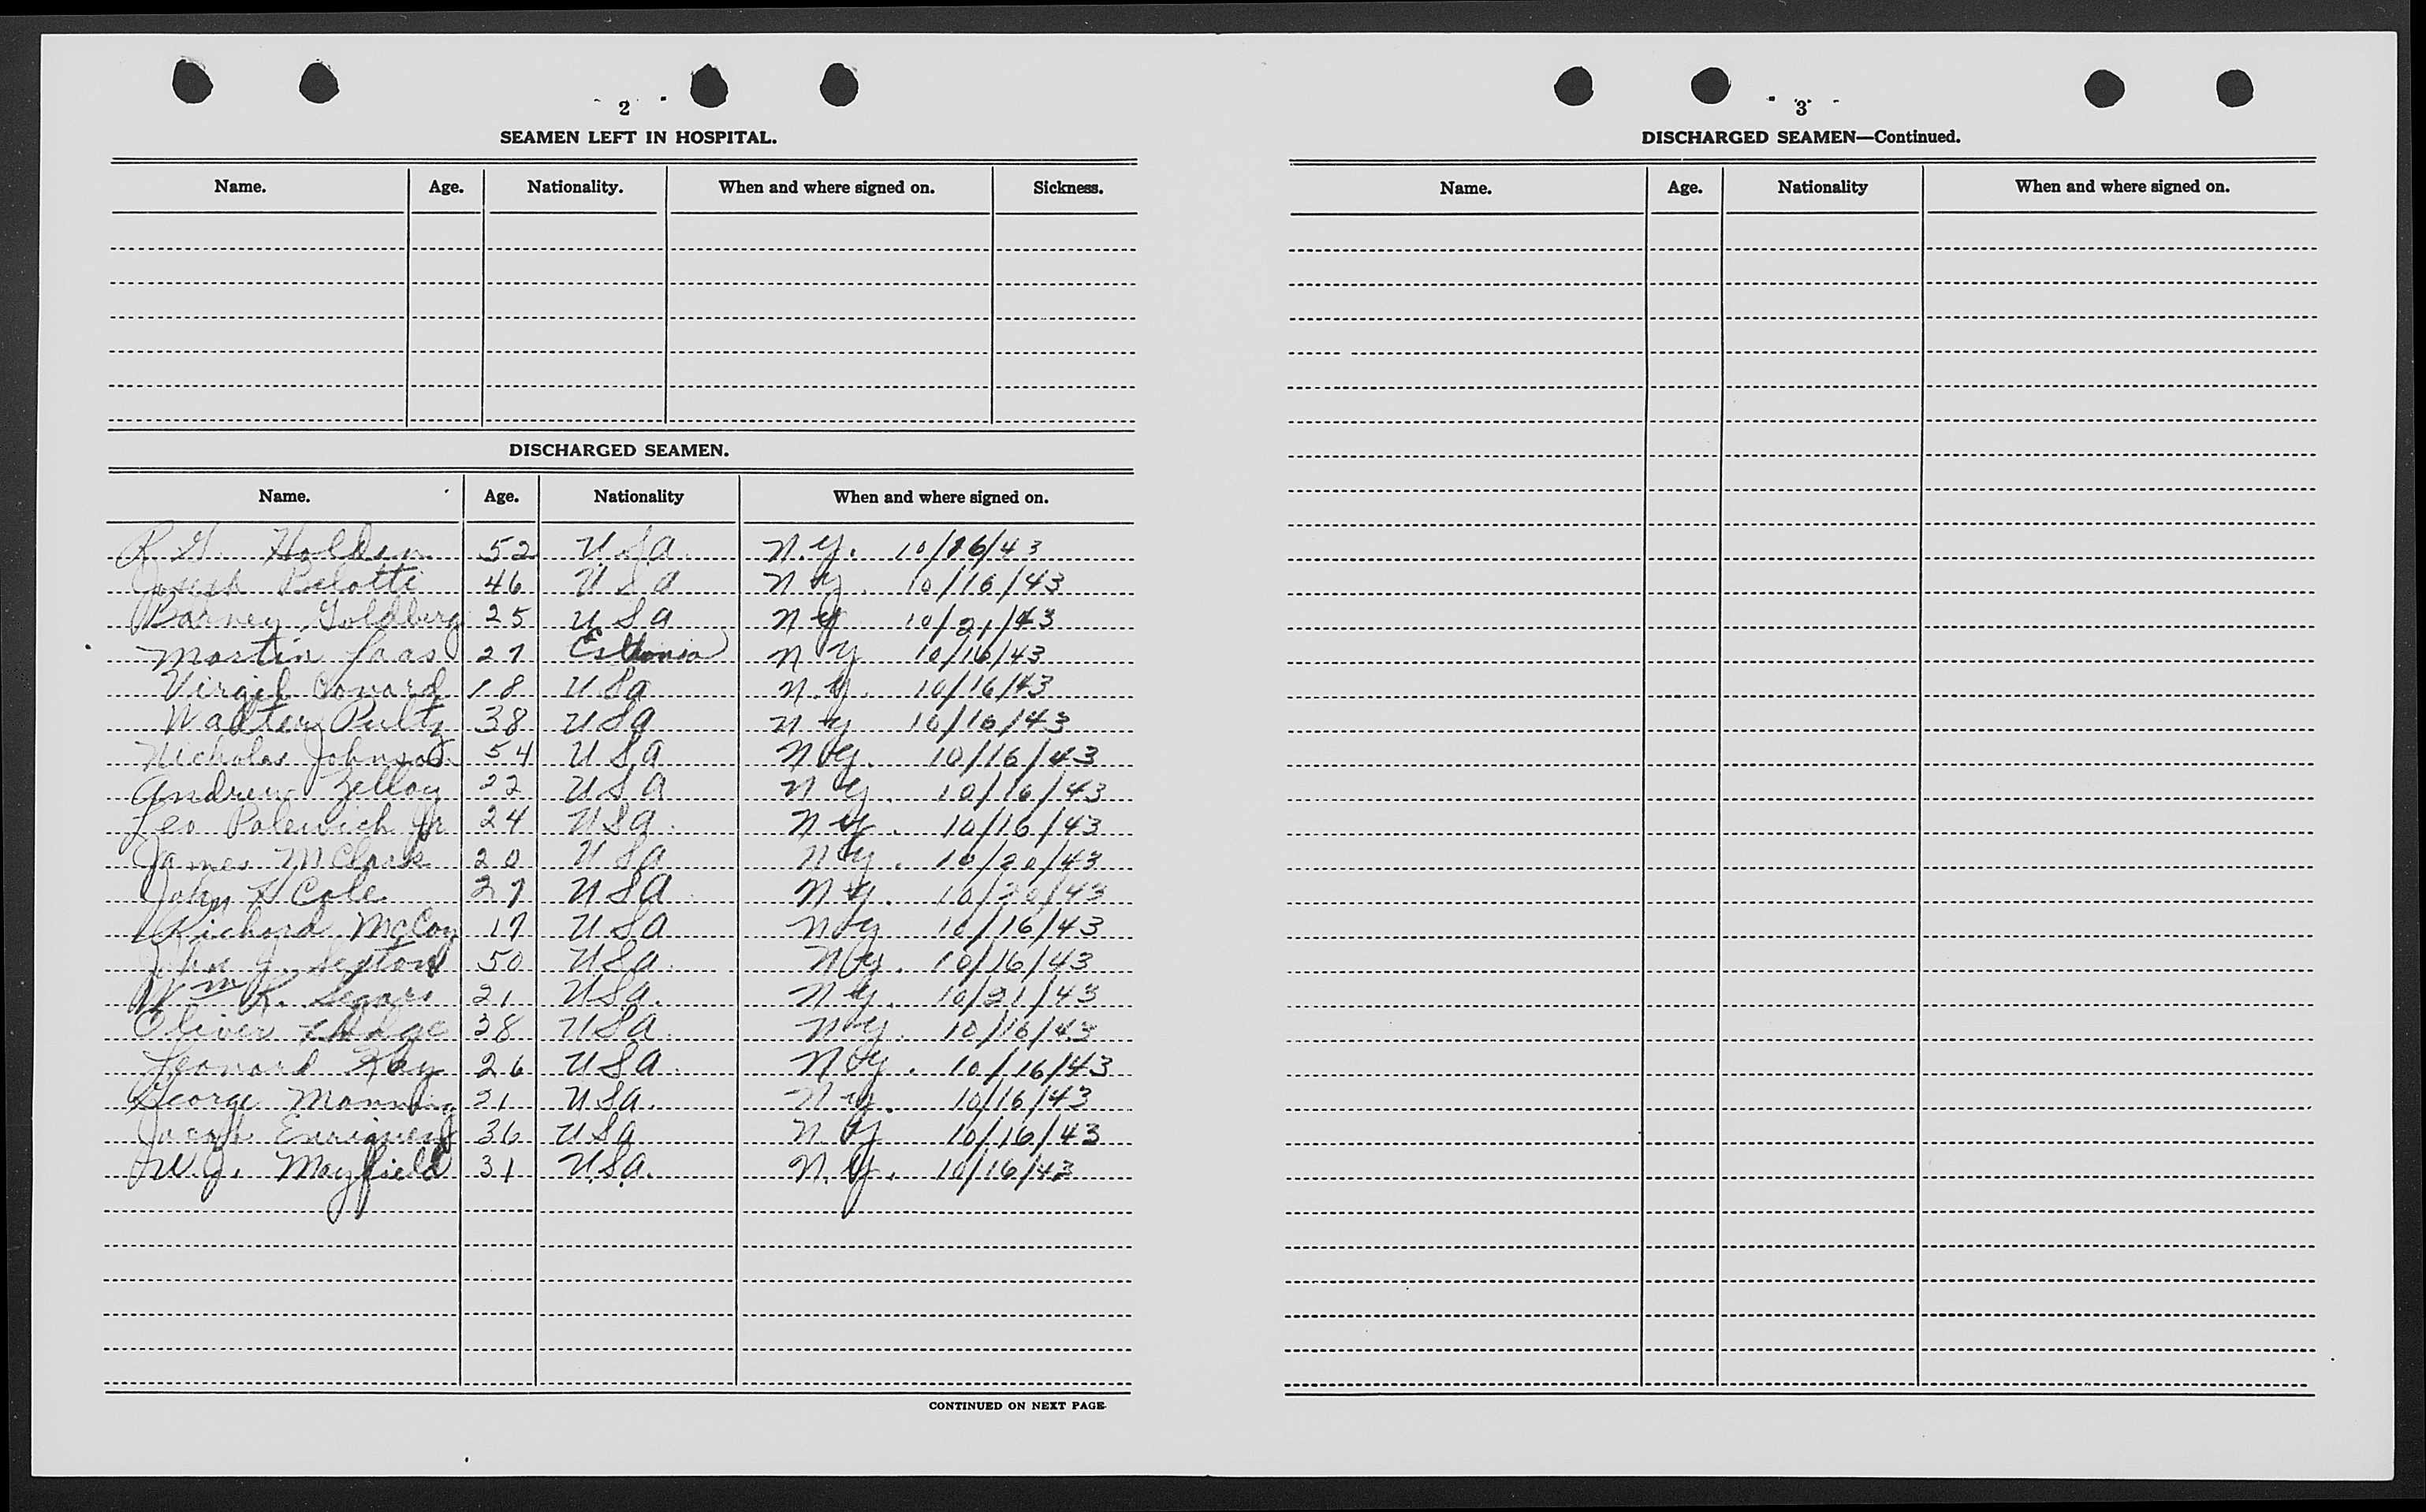 2
SEAMEN LEFT IN HOSPITAL.
Name. Age. Nationality. When and where signed on. Sickness.
DISCHARGED SEAMEN.
Name. Age. Nationality When and where signed on.
R G. Holden 52 U.S.A. N.Y. 10/16/43
Joseph Pelotte 46 U S A N Y. 10/16/43
Barney Goldberg 25 U S A N Y 10/21/43
Martin Laas 27 Esthonia N Y 10/16/43
Virgil Conard 18 U S a N.Y. 10/16/43
Walter Pultz 38 U S a N Y 10/16/43
Nicholas Johnson 54 U S A N Y. 10/16/43
Andrew Zelloy 22 U S A N Y. 10/16/43
Leo Palewich Jr 24 U S a. N Y. 10/16/43
James M Clark 20 U S a N Y. 10/20/43
John Cole 27 U S A. N Y. 10/20/43
Richard McCoy 17 U S A N Y 10/16/43
John J. Sexton 50 U S a. N Y. 10/16/43
Wm R. Segars 21 U S a. N Y. 10/21/43
Oliver 38 U S a. N Y. 10/16/43
Leonard Kay 26 U S a. N Y. 10/16/43
George Manning 21 U S a. N Y. 10/16/43
Jacob Enriquez 36 U S a N Y 10/16/43
W. J. Mayfield 31 U.S.A. N.Y. 10/16/43
CONTINUED ON NEXT PAGE
3
DISCHARGED SEAMEN—Continued.
Name. Age. Nationality When and where signed on.